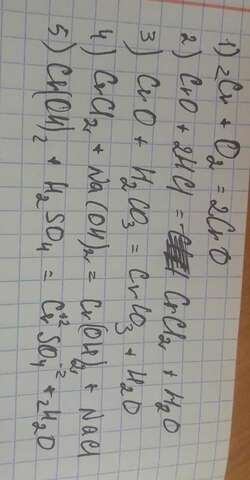 1) 2Cr + O₂ = 2CrO
2) CrO + 2HCl = CrCl₂ + H₂O
3) CrO + H₂CO₃ = CrCO₃ + H₂O
4) CrCl₂ + Na(OH)₂ = Cr(OH)₂ + NaCl
5) Cr(OH)₂ + H₂SO₄ = Cr⁺²SO₄⁻² + 2H₂O